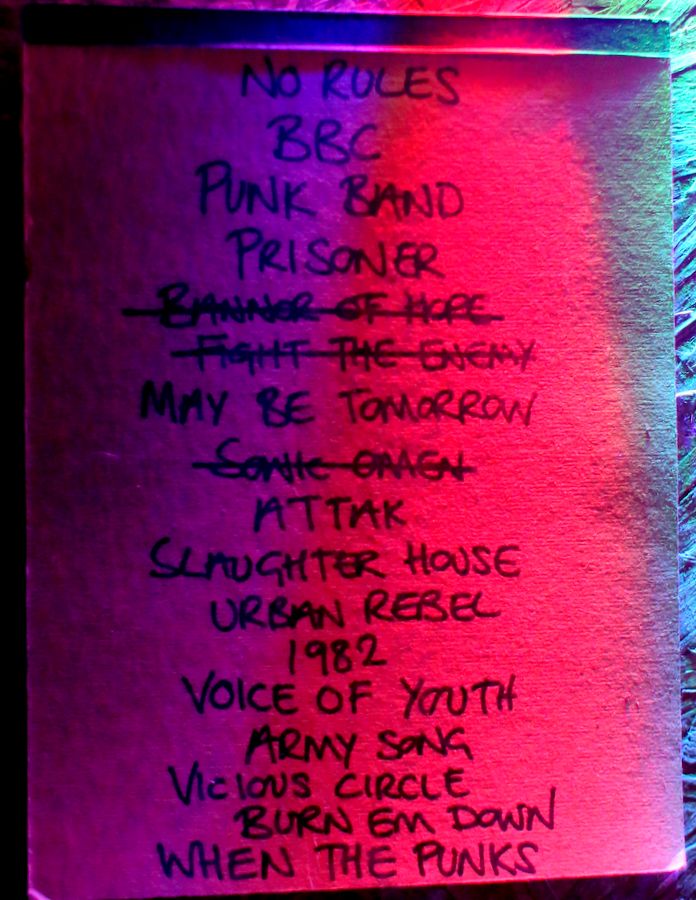 NO RULES
BBC
PUNK BAND
PRISONER
BANNER OF HOPE
FIGHT THE ENEMY
MAY BE TOMORROW
SONIC OMEN
ATTAK
SLAUGHTER HOUSE
URBAN REBEL
1982
VOICE OF YOUTH
ARMY SONG
VICIOUS CIRCLE
BURN EM DOWN
WHEN THE PUNKS